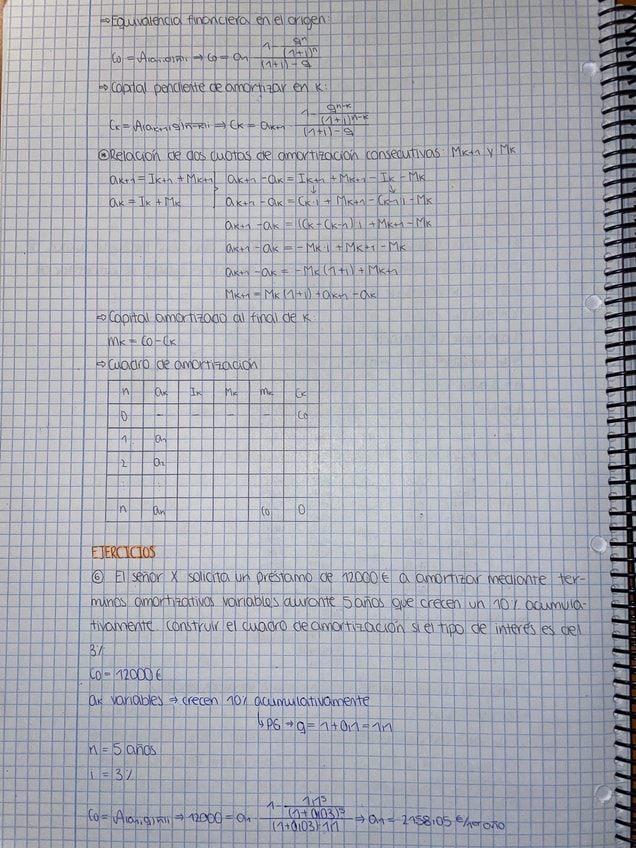 ⇒ Equivalencia financiera en el origen
C₀ = A(a₁,q)n̅|i ⇒ C₀ = a₁ (1 - qⁿ/(1+i)ⁿ)/((1+i) - q)
⇒ Capital pendiente de amortizar en k:
Cₖ = A(aₖ₊₁,q)n-k|i ⇒ Cₖ = aₖ₊₁ (1 - qⁿ⁻ᵏ/(1+i)ⁿ⁻ᵏ)/((1+i) - q)
Relación de dos cuotas de amortización consecutivas: Mₖ₊₁ y Mₖ
aₖ₊₁ = Iₖ₊₁ + Mₖ₊₁ } aₖ₊₁ - aₖ = Iₖ₊₁ + Mₖ₊₁ - Iₖ - Mₖ
aₖ = Iₖ + Mₖ aₖ₊₁ - aₖ = Cₖ i + Mₖ₊₁ - Cₖ₋₁ i - Mₖ
aₖ₊₁ - aₖ = (Cₖ - Cₖ₋₁) i + Mₖ₊₁ - Mₖ
aₖ₊₁ - aₖ = -Mₖ i + Mₖ₊₁ - Mₖ
aₖ₊₁ - aₖ = -Mₖ (1+i) + Mₖ₊₁
Mₖ₊₁ = Mₖ (1+i) + aₖ₊₁ - aₖ
⇒ Capital amortizado al final de k
mₖ = C₀ - Cₖ
⇒ Cuadro de amortización
n aₖ Iₖ Mₖ mₖ Cₖ
0 - - - - C₀
1 a₁
2 a₂
: :
n aₙ C₀ 0
EJERCICIOS
⑥ El señor X solicita un préstamo de 12000€ a amortizar mediante tér-
minos amortizativos variables durante 5 años que crecen un 10% acumula-
tivamente. Construir el cuadro de amortización si el tipo de interés es del
3%
C₀ = 12000€
aₖ variables ⇒ crecen 10% acumulativamente
↳ PG ⇒ q = 1 + 0,1 = 1,1
n = 5 años
i = 3%
C₀ = A(a₁,q)n̅|i ⇒ 12000 = a₁ (1 - 1,1⁵/(1+0,03)⁵)/((1+0,03) - 1,1) ⇒ a₁ = 2158,05 €/1er año